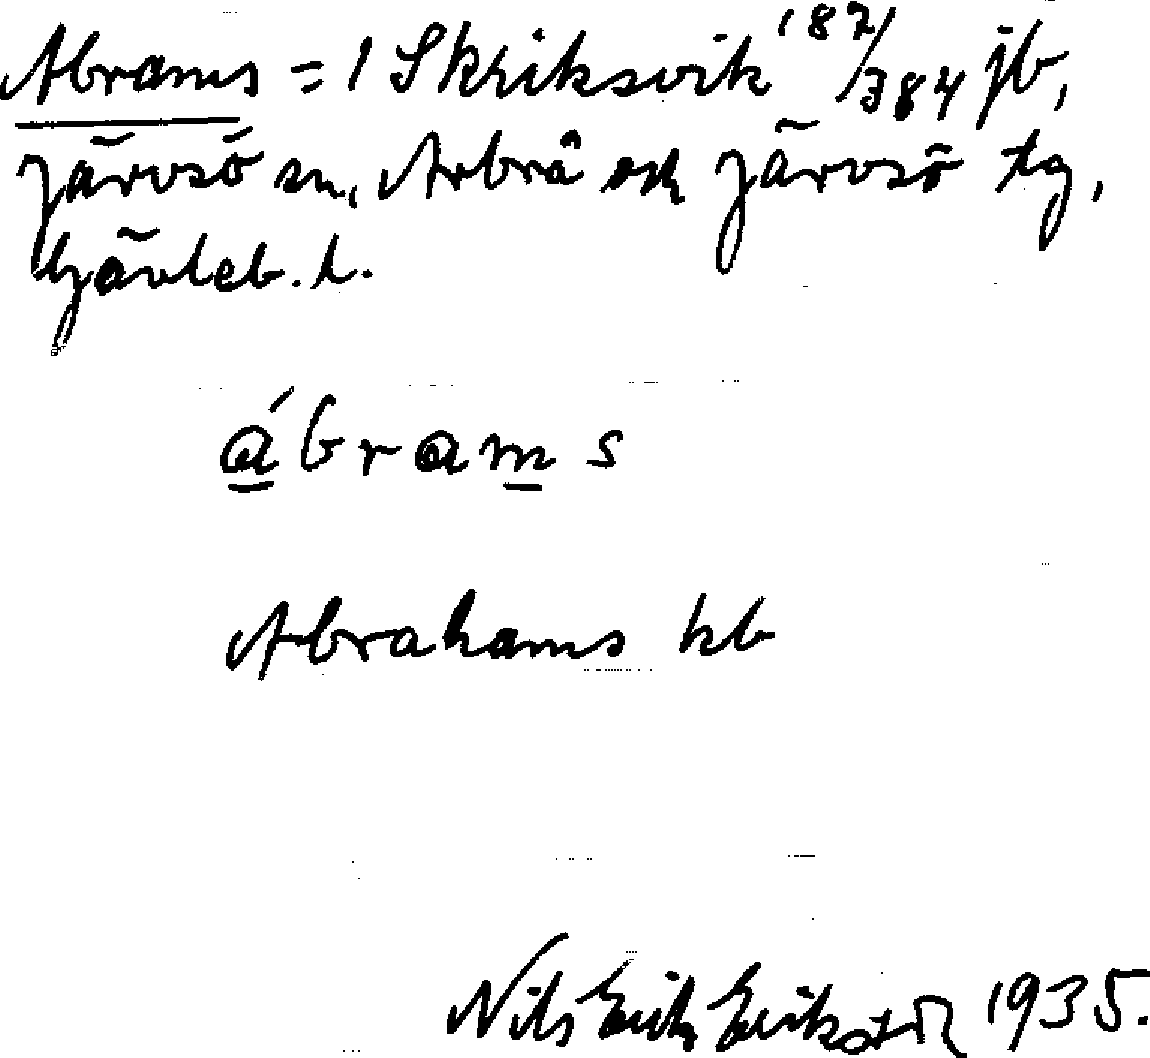 Abrams = 1 Skriksvik 187/384 jb,
Järvsö sn, Arbrå och Järvsö tg,
Gävleb. l.
ábrams
Abrahams kb
Nils Erik Eriksson 1935.